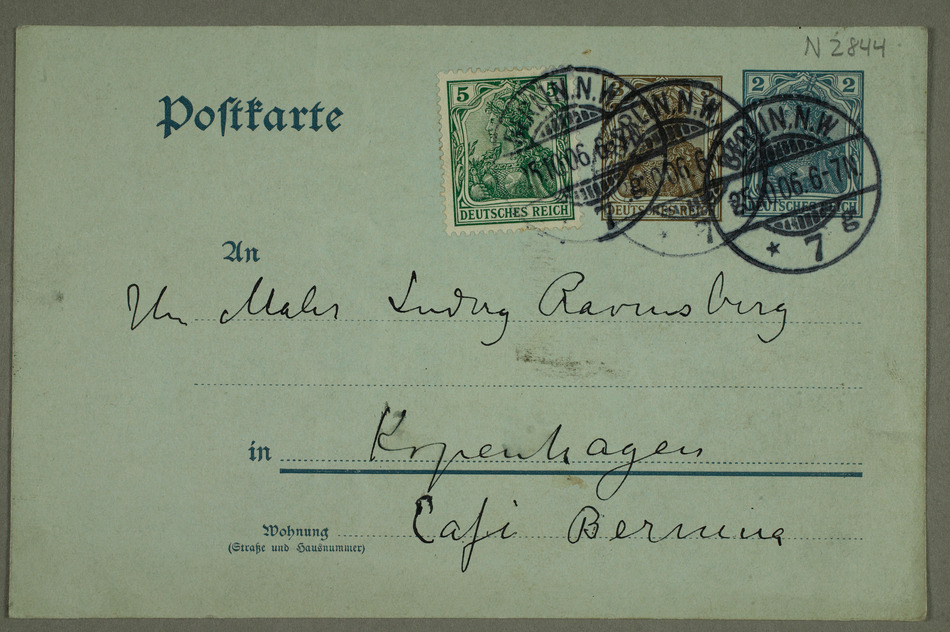 N 2844
Postkarte
5 5
DEUTSCHES REICH
DEUTSCHES REICH
2 2
DEUTSCHES REICH
BERLIN.N.W.
7
BERLIN.N.W.
7
BERLIN.N.W.
25.10.06.6-7N.
* 7 g
An
Hrn Maler Ludvig Ravensberg
in Kopenhagen
Café Bernina
Wohnung
(Straße und Hausnummer)